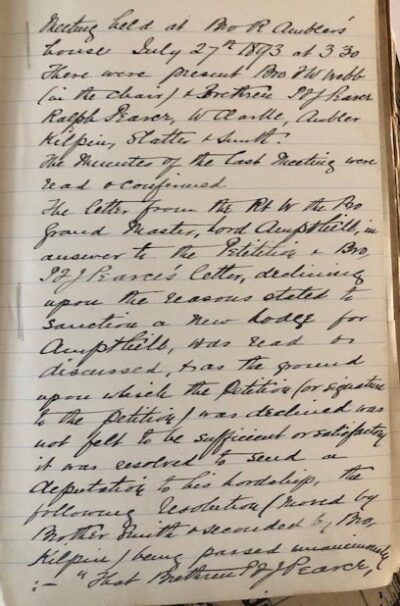 Meeting held at Bro R Ambler's
house July 27th 1893 at 3.30
There were present Bro FW Webb
(in the chair) & Brethren Pearce
Ralph Pearce, W Clarke, Ambler
Kilpin, Slatter & Smith.
The Minutes of the last Meeting were
read & confirmed
The letter from the Rt W the Bro
Grand Master, Lord Ampthill, in
answer to the Petition & Bro
J Pearce's letter, declining
upon the reasons stated to
sanction a new Lodge for
Ampthill, was read &
discussed, & as the ground
upon which the Petition (or signature
to the Petition) was declined was
not felt to be sufficient or satisfactory
it was resolved to send a
deputation to his Lordship, the
following resolution (moved by
Brother Smith & seconded by Bro.
Kilpin) being passed unanimously
:- "That Brethren J Pearce,